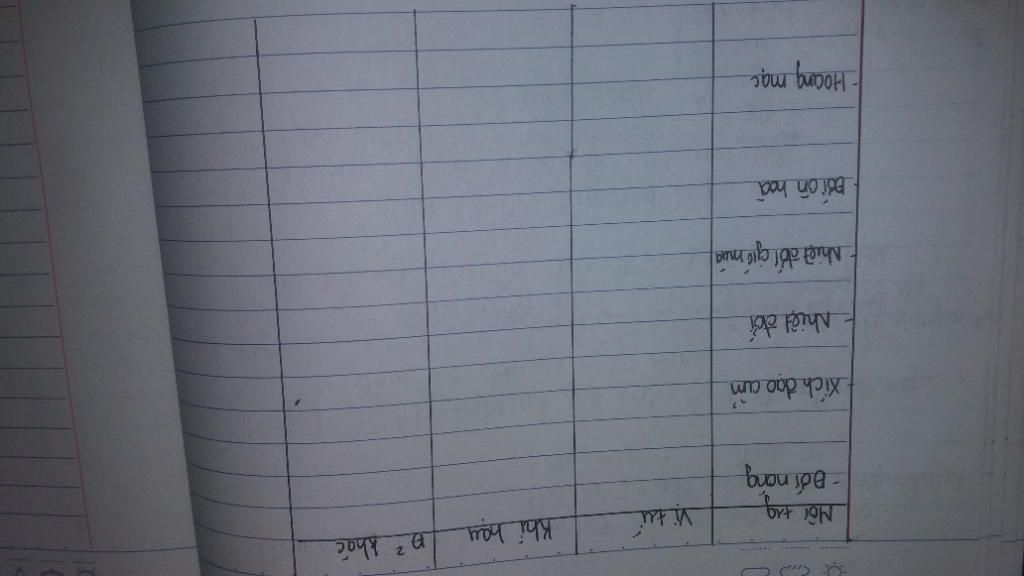 Môi trg Vị trí Khí hậu Đ² khác
- Đới nóng
- Xích đạo ẩm
- Nhiệt đới
- Nhiệt đới gió mùa
- Đới ôn hoà
- Hoang mạc